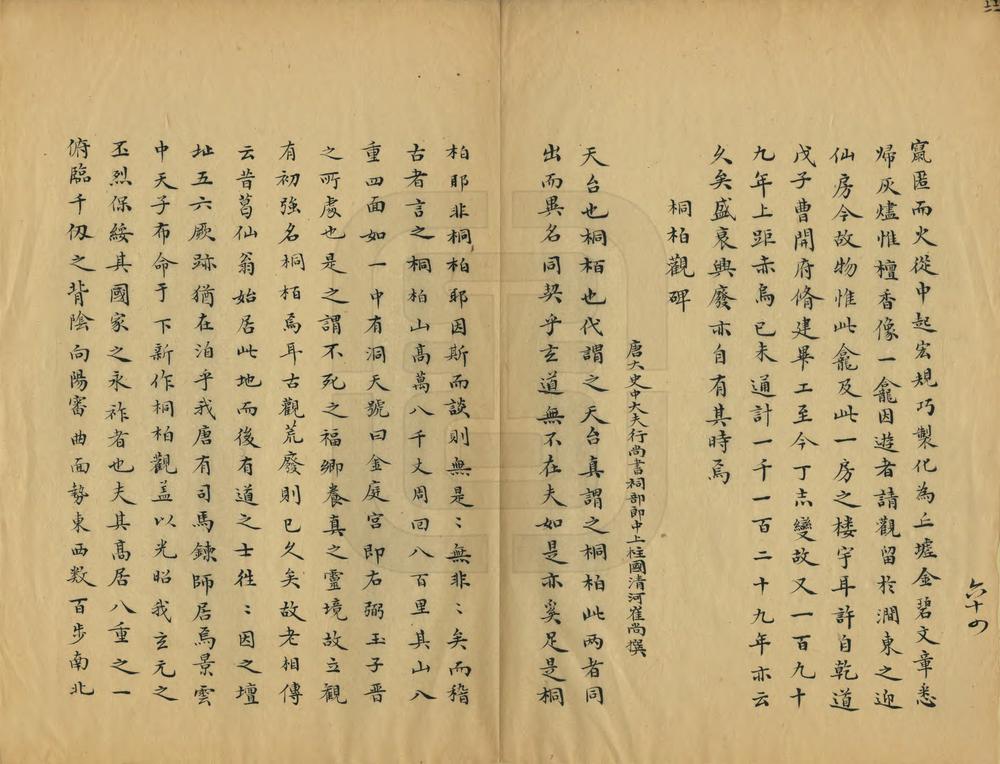 竄匿而火從中起宏規巧製化為丘墟金碧文章悉
歸灰燼惟檀香像一龕因遊者請觀留於澗東之迎
仙房今故物惟此龕及此一房之楼宇耳許自乾道
戊子曹開府脩建畢工至今丁亥變故又一百九十
九年上距赤烏已未通計一千一百二十九年亦云
久矣盛衰興廢亦自有其時焉
桐柏觀碑
唐大史中大夫行尚書祠部郎中上柱國清河崔尚撰
天台也桐栢也代謂之天台真謂之桐柏此两者同
出而異名同契乎玄道無不在夫如是亦奚足是桐
柏耶非桐柏耶因斯而談則無是：無非：矣而稽
古者言之桐柏山高萬八千丈周回八百里其山八
重四面如一中有洞天號曰金庭宮即右弼王子晋
之所處也是之謂不死之福鄉養真之靈境故立觀
有初強名桐栢焉耳古觀荒廢則已久矣故老相傳
云昔葛仙翁始居此地而後有道之士徃：因之壇
址五六厥跡猶在洎乎我唐有司馬鍊師居焉景雲
中天子布命于下新作桐柏觀盖以光昭我玄元之
丕烈保綏其國家之永祚者也夫其高居八重之一
俯臨千仭之背陰向陽審曲面勢東西数百步南北
六十四